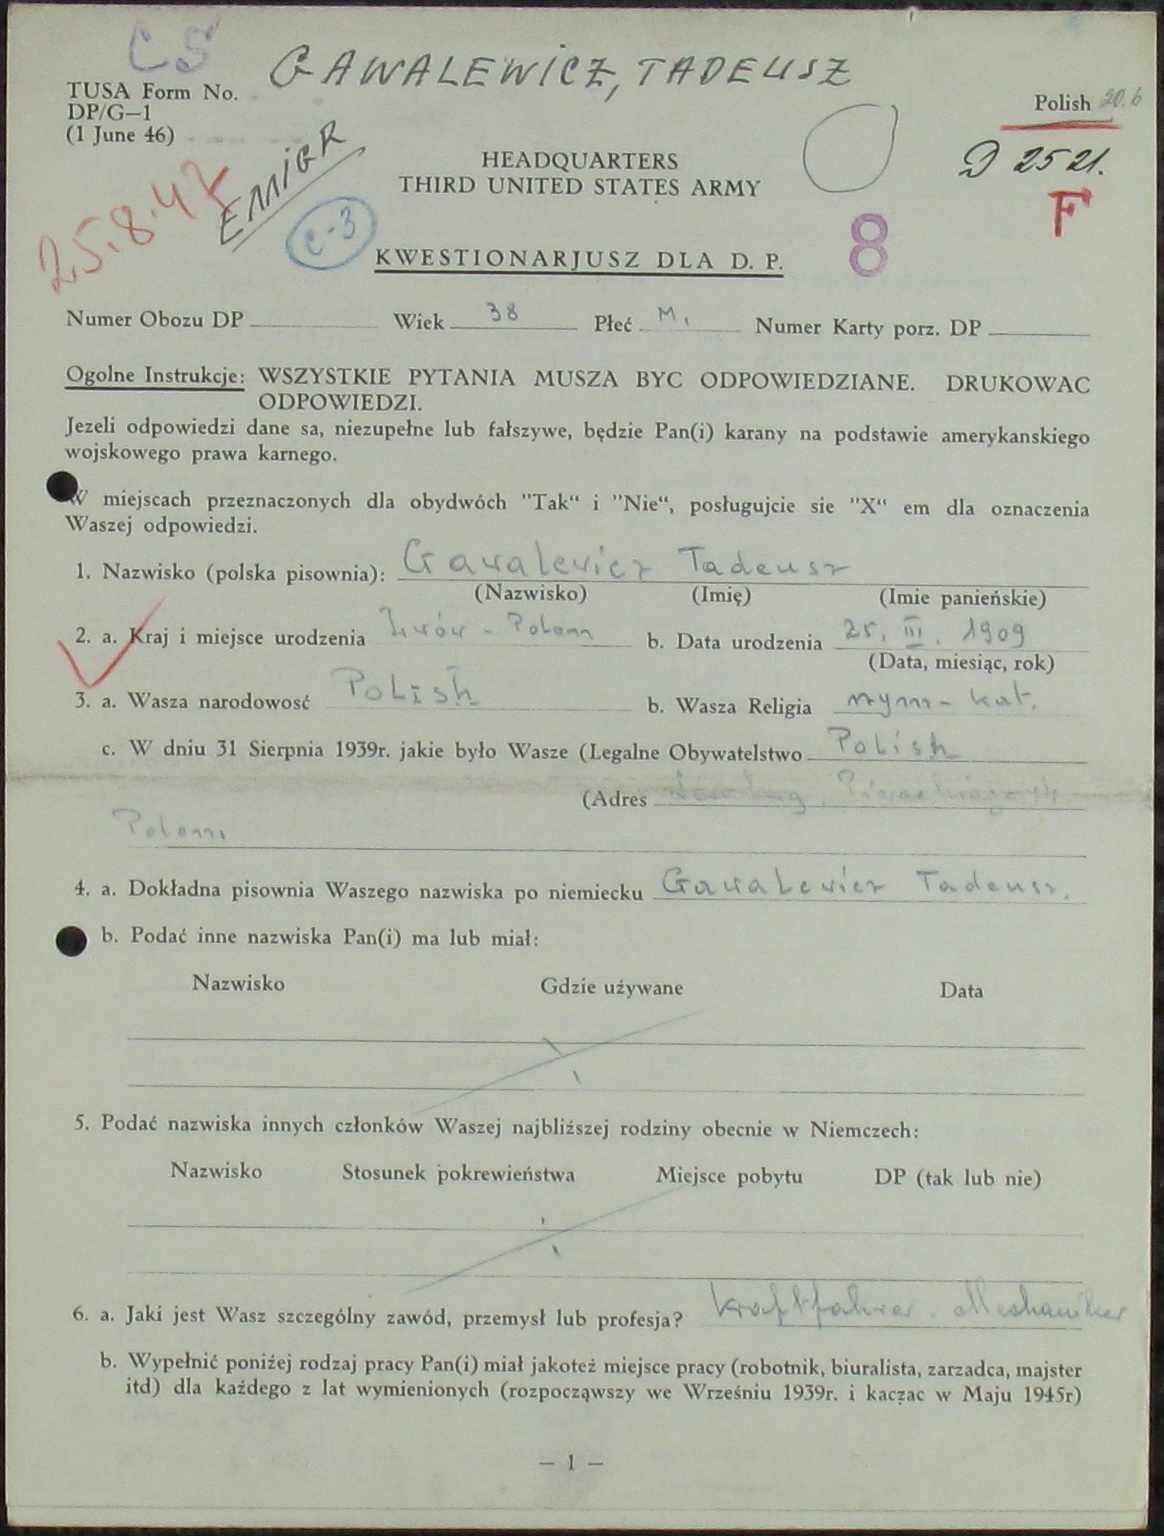 CS
GAWALEWICZ, TADEUSZ
TUSA Form No.
DP/G—1
(1 June 46)
Polish 20.6
D 2521.
F
25.8.47
EMIGR
C-3
8
HEADQUARTERS
THIRD UNITED STATES ARMY
KWESTIONARJUSZ DLA D. P.
Numer Obozu DP Wiek 38 Płeć M. Numer Karty porz. DP
Ogolne Instrukcje: WSZYSTKIE PYTANIA MUSZA BYC ODPOWIEDZIANE. DRUKOWAC
ODPOWIEDZI.
Jezeli odpowiedzi dane sa, niezupełne lub fałszywe, będzie Pan(i) karany na podstawie amerykanskiego
wojskowego prawa karnego.
W miejscach przeznaczonych dla obydwóch "Tak“ i "Nie“, posługujcie sie "X“ em dla oznaczenia
Waszej odpowiedzi.
1. Nazwisko (polska pisownia): Gawalewicz Tadeusz
(Nazwisko) (Imię) (Imie panieńskie)
2. a. Kraj i miejsce urodzenia Lwów - b. Data urodzenia 25. III. 1909
(Data, miesiąc, rok)
3. a. Wasza narodowość Polish b. Wasza Religia rzym-kat.
c. W dniu 31 Sierpnia 1939r. jakie było Wasze (Legalne Obywatelstwo Polish
(Adres
4. a. Dokładna pisownia Waszego nazwiska po niemiecku Gawalewicz Tadeusz.
b. Podać inne nazwiska Pan(i) ma lub miał:
Nazwisko Gdzie używane Data
5. Podać nazwiska innych członków Waszej najbliższej rodziny obecnie w Niemczech:
Nazwisko Stosunek pokrewieństwa Miejsce pobytu DP (tak lub nie)
6. a. Jaki jest Wasz szczególny zawód, przemysł lub profesja? Kraftfahrer - Mechaniker
b. Wypełnić poniżej rodzaj pracy Pan(i) miał jakoteż miejsce pracy (robotnik, biuralista, zarzadca, majster
itd) dla każdego z lat wymienionych (rozpocząwszy we Wrześniu 1939r. i kaczac w Maju 1945r)
— 1 —